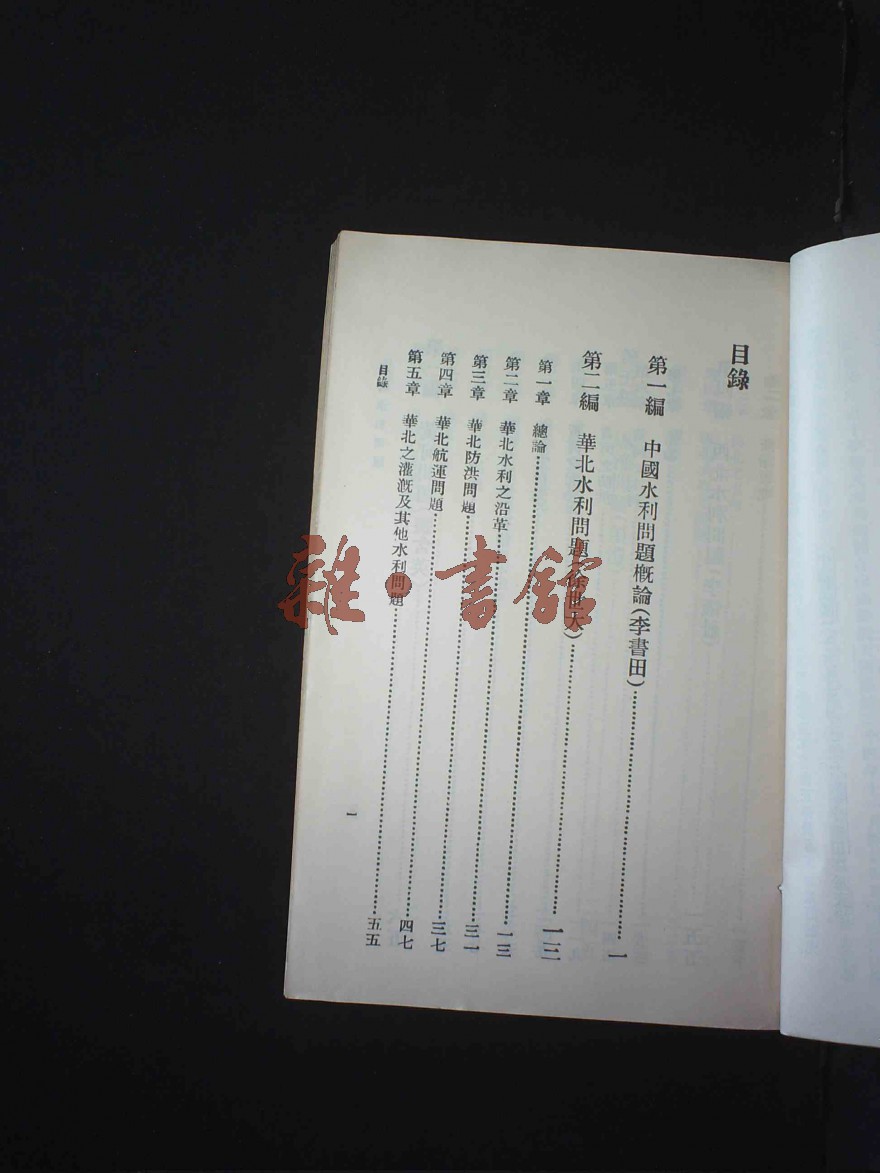 目錄
第一編 中國水利問題概論(李書田)……一
第二編 華北水利問題(徐世大)……一三
第一章 總論……一三
第二章 華北水利之沿革……三一
第三章 華北防洪問題……三七
第四章 華北航運問題……四七
第五章 華北之灌漑及其他水利問題……五五
目錄
一
雜·書館